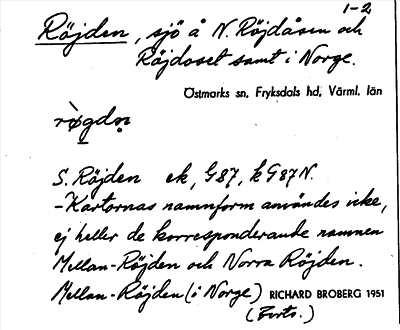 1-2
Röjden, sjö å N. Röjdåsen och
Röjdoset samt i Norge.
Östmarks sn, Fryksdals hd, Värml. län
S. Röjden ek, G87, k G87 N.
-Kartornas namnform användes icke,
ej heller de korresponderande namnen
Mellan-Röjden och Norra Röjden.
Mellan-Röjden (i Norge) RICHARD BROBERG 1951
(Forts.)